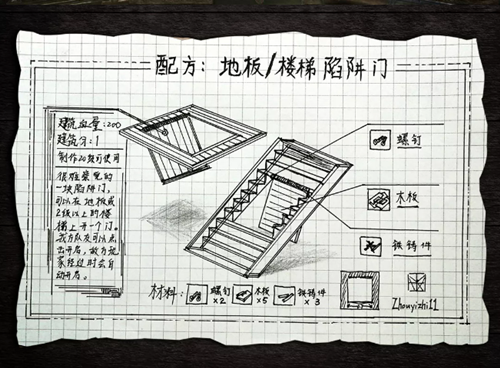 配方: 地板/楼梯 陷阱门
建筑血量:200
建筑分:1
制作20级可使用
很难察觉的
一块陷阱门,
可以在地板或
2级以上的楼
梯上开一个门。
我方队友可以点
击开启,敌方玩
家经过时会自
动开启。
螺钉
木板
铁铸件
材料:
螺钉
x2
木板
x5
铁铸件
x3
Zhouyizhi11